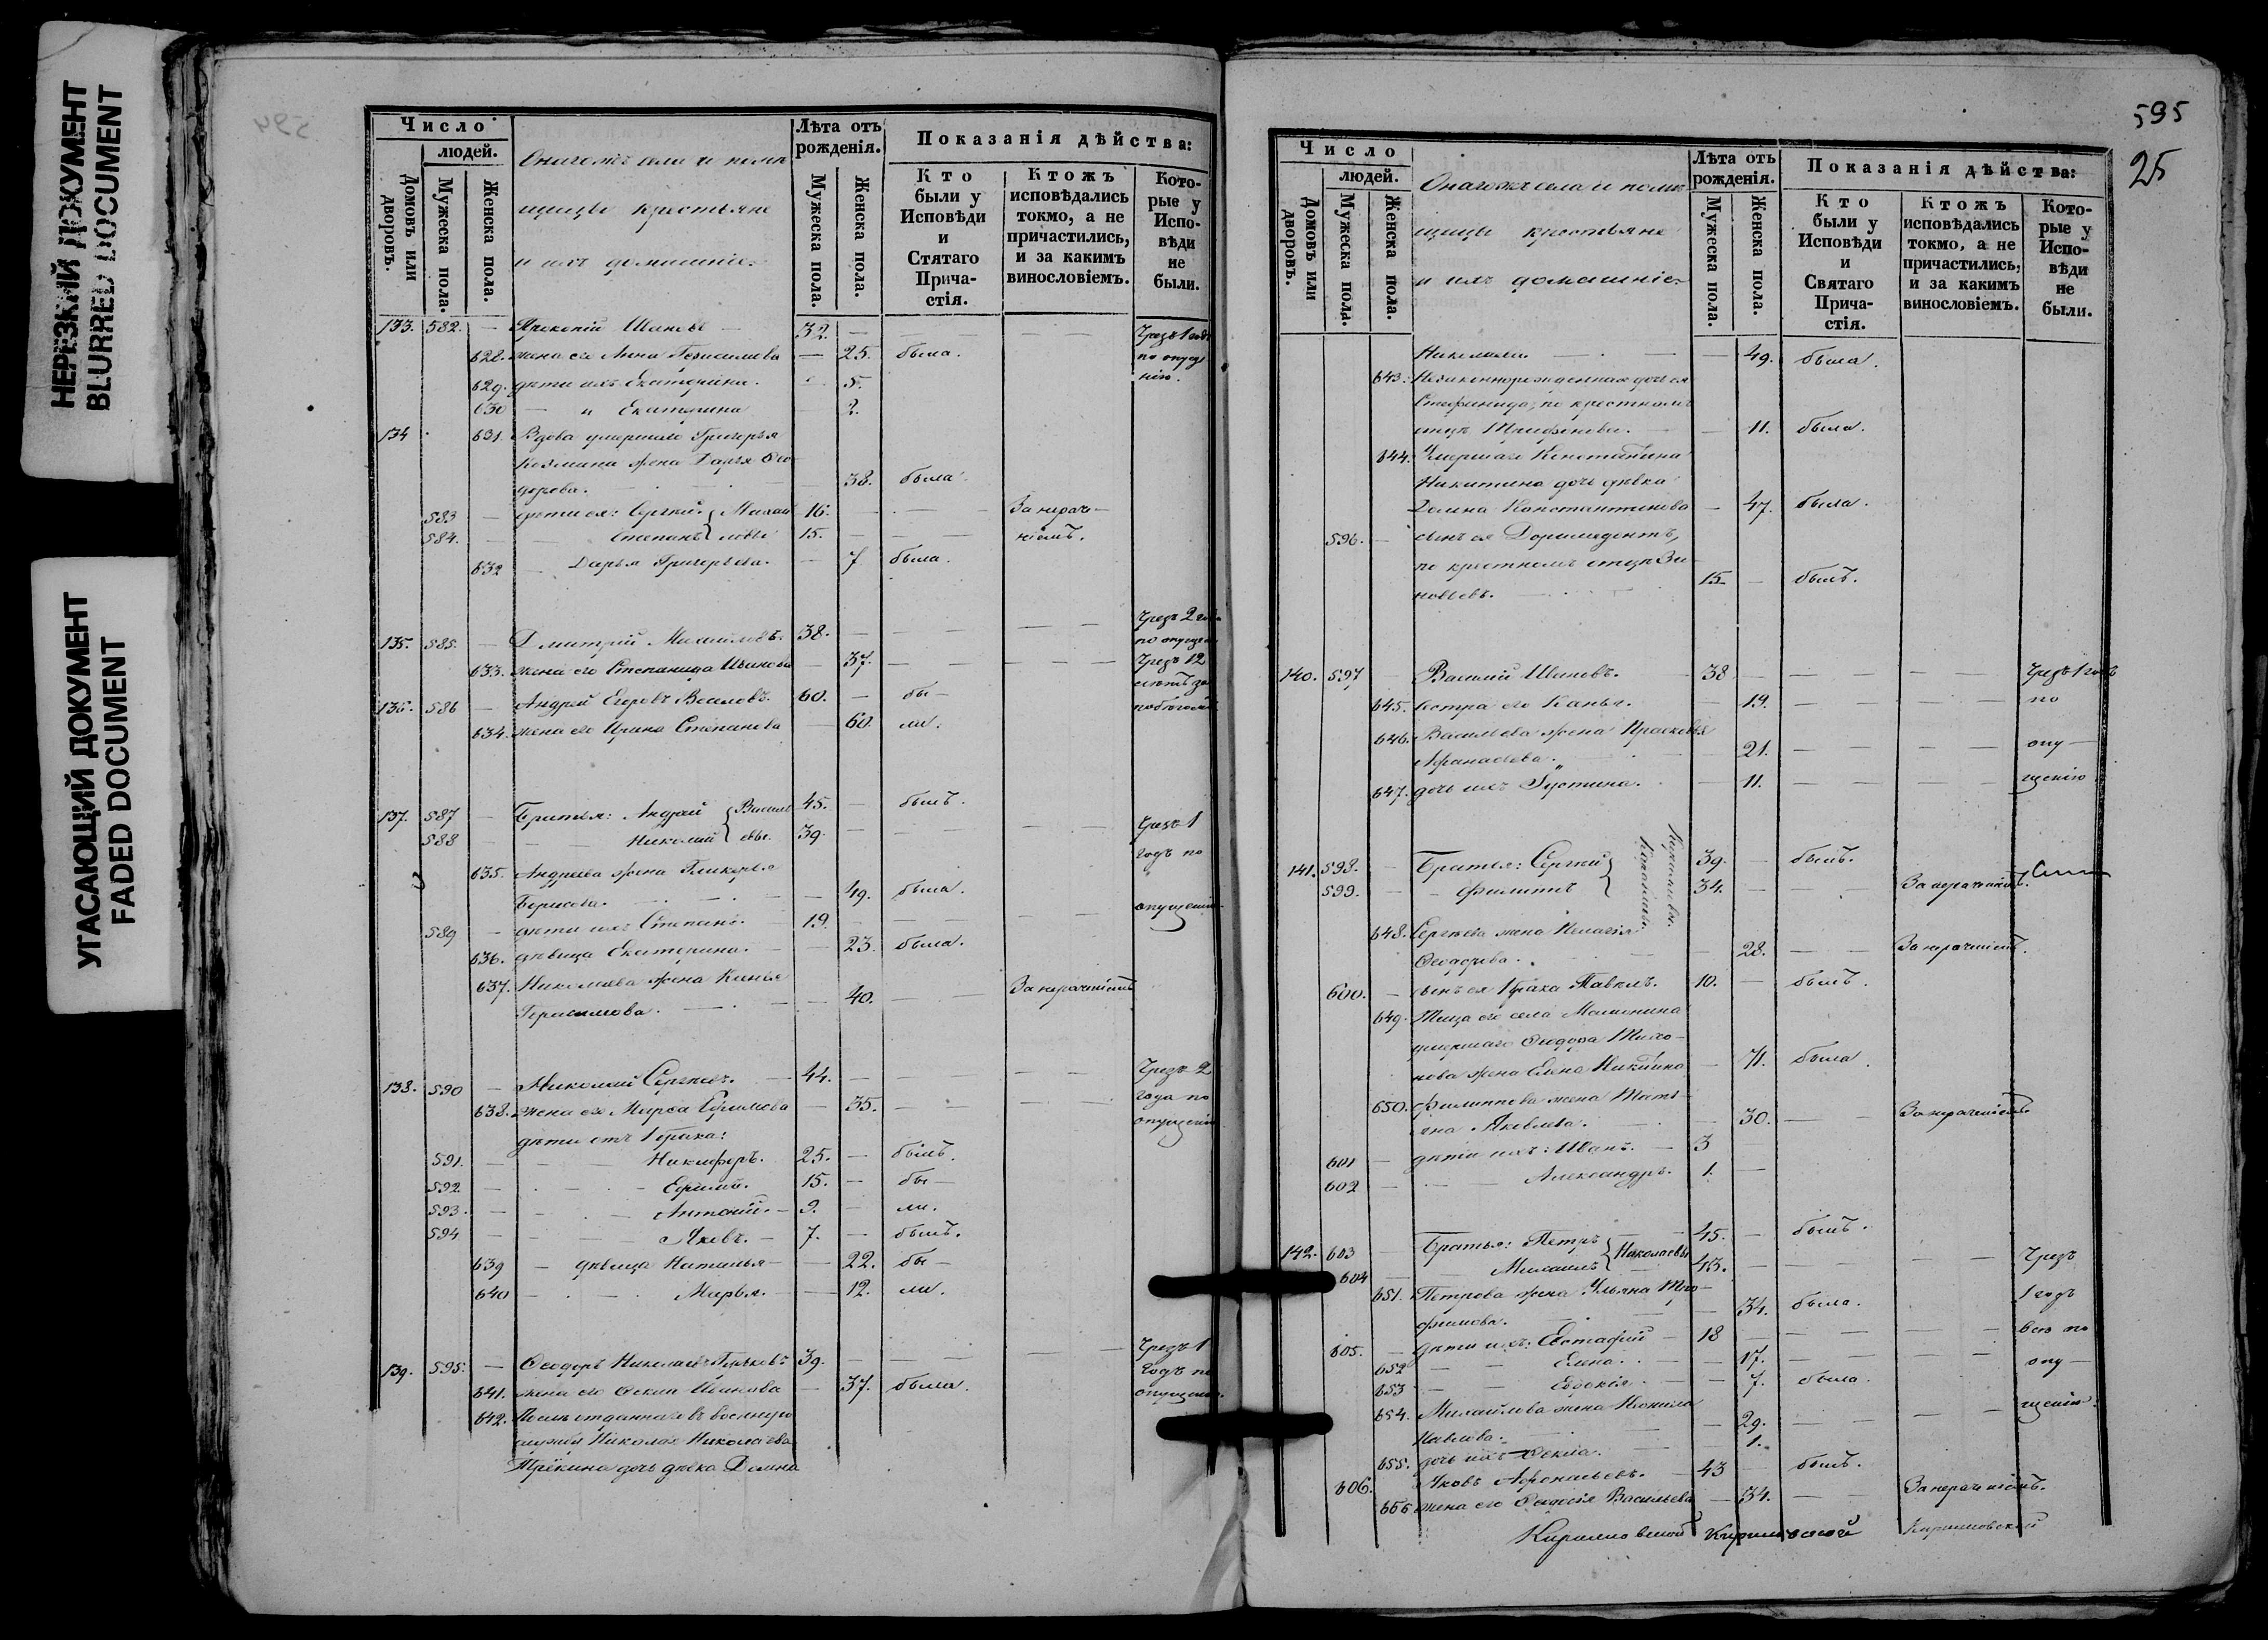 НЕРЕЗКИЙ ДОКУМЕНТ
BLURRED DOCUMENT
УГАСАЮЩИЙ ДОКУМЕНТ
FADED DOCUMENT
594
Число
людей.
Домовъ или дворовъ.
Мужеска пола.
Женска пола.
крестьяне
и ихъ домашніе.
Лѣта отъ рожденія.
Мужеска пола.
Женска пола.
Показанія дѣйства:
Кто были у Исповѣди и Стятаго Прича-стія.
Ктожъ исповѣдались токмо, а не причастились, и за какимъ винословіемъ.
Кото-рые у Испо-вѣди не были.
133. 582. — 32. — Чрезъ 1 годъ
628. жена его Анна — 25. была. по опуще
629. дѣти ихъ Екатерина. 5. нію.
630 — и Екатерина 2.
134 631. Вдова умершаго Григорья
жена Дарья Ѳео
дорова. 38. была.
583 — дѣти ея: Сергій. Михай 16. За нерач—
584. Степанъ ловы 15. ніемъ.
632 Дарья Григорьева. — 7 была.
Чрезъ 2 года
135. 585. — Дмитрій Михайловъ. 38. — по опущен
633. жена его Степанида Иванова — 37. Чрезъ 12
136. 586 — Андрей Егоровъ 60. — бы— лѣтъ за
634. жена его Ирина Степанова — 60. ли.
137. 587 — Братья: Андрей Василь 45. — былъ.
588 Николай евы. 39. Чрезъ 1
635. Андреева жена Гликерья годъ по
Борисова. — 49. была.
589 — дѣти ихъ Степанъ. 19. опущенію
636. дѣвица Екатерина. — 23. была.
637. Николаева жена
Герасимова. — 40. За нераченіемъ
138. 590 — Николай Сергѣевъ. 44. — Чрезъ 2
638. жена его Марѳа Ефимова — 35. года по
дѣти отъ 1 брака: опущенію
591. — Никифоръ. 25. — былъ.
592 Ефимъ. 15. — бы—
593. — 9. — ли.
594 Яковъ. — 7. — былъ.
639 — дѣвица Наталья — 22. бы—
640 Марья. — 12. ли.
139. 595. — Ѳеодоръ Николаевъ 39. Чрезъ 1
641. жена его Иванова — 37. была. годъ по
642. отданнаго въ военную опущенію.
службу Николая Николаева
дочь дѣвка Домна
595
25
Число
людей.
Домовъ или дворовъ.
Мужеска пола.
Женска пола.
крестьяне
и ихъ домашніе
Лѣта отъ рожденія.
Мужеска пола.
Женска пола.
Показанія дѣйства:
Кто были у Исповѣди и Святаго Прича-стія.
Ктожъ исповѣдались токмо, а не причастились, и за какимъ винословіемъ.
Кото-рые у Испо-вѣди не были.
Николаева — 49. была.
643. Незаконнорожденная дочь ея
Стефанида, по крестному
отцу Трифонова. — 11. была.
644. Умершаго Константина
Никитина дочь дѣвка
Домна Константинова — 47. была.
596. — сынъ ея Доримедонтъ,
по крестному отцу Зи
новьевъ. 15 — былъ.
140. 597 — Василій Ивановъ. 38 Чрезъ 1 годъ
645. сестра его — 19. по
646. Васильева жена Прасковья
Афанасьева. 21. опу—
647. дочь ихъ Іустина. — 11. щенію
141. 598. — Братья: Сергій Корниловы. 39. — былъ.
599. Филиппъ 34. За нераченіемъ.
648. Сергѣева жена Пелагія
Ѳеодорова. 28. — За нераченіемъ.
600. — сынъ ея 1 брака Павелъ. 10. — былъ.
649. Теща его села
умершаго Ѳеодора Тихо—
нова жена Елена — 71. была.
650. Филиппова жена Тать—
яна Яковлева. — 30. — За нераченіемъ
601 — дѣти ихъ: Иванъ. — 3
602 Александръ. 1. —
142. 603 — Братья: Петръ Николаевы 45. — былъ.
604 Михаилъ 43. Чрезъ
651. Петрова жена Ульяна Тро— 1 годъ
фимова. — 34. была.
605. — дѣти ихъ: Евстафій — 18 всѣ по
652 Елена. — 17. — опу—
653 Евдокія. — 7. была.
654. Михайлова жена щенію.
Павлова. — 29.
655. дочь ихъ Ѳекла. 1.
606. Яковъ Афонасьевъ. 43 былъ.
656 жена его Ѳедосія Васильева — 34. За нераченіемъ.